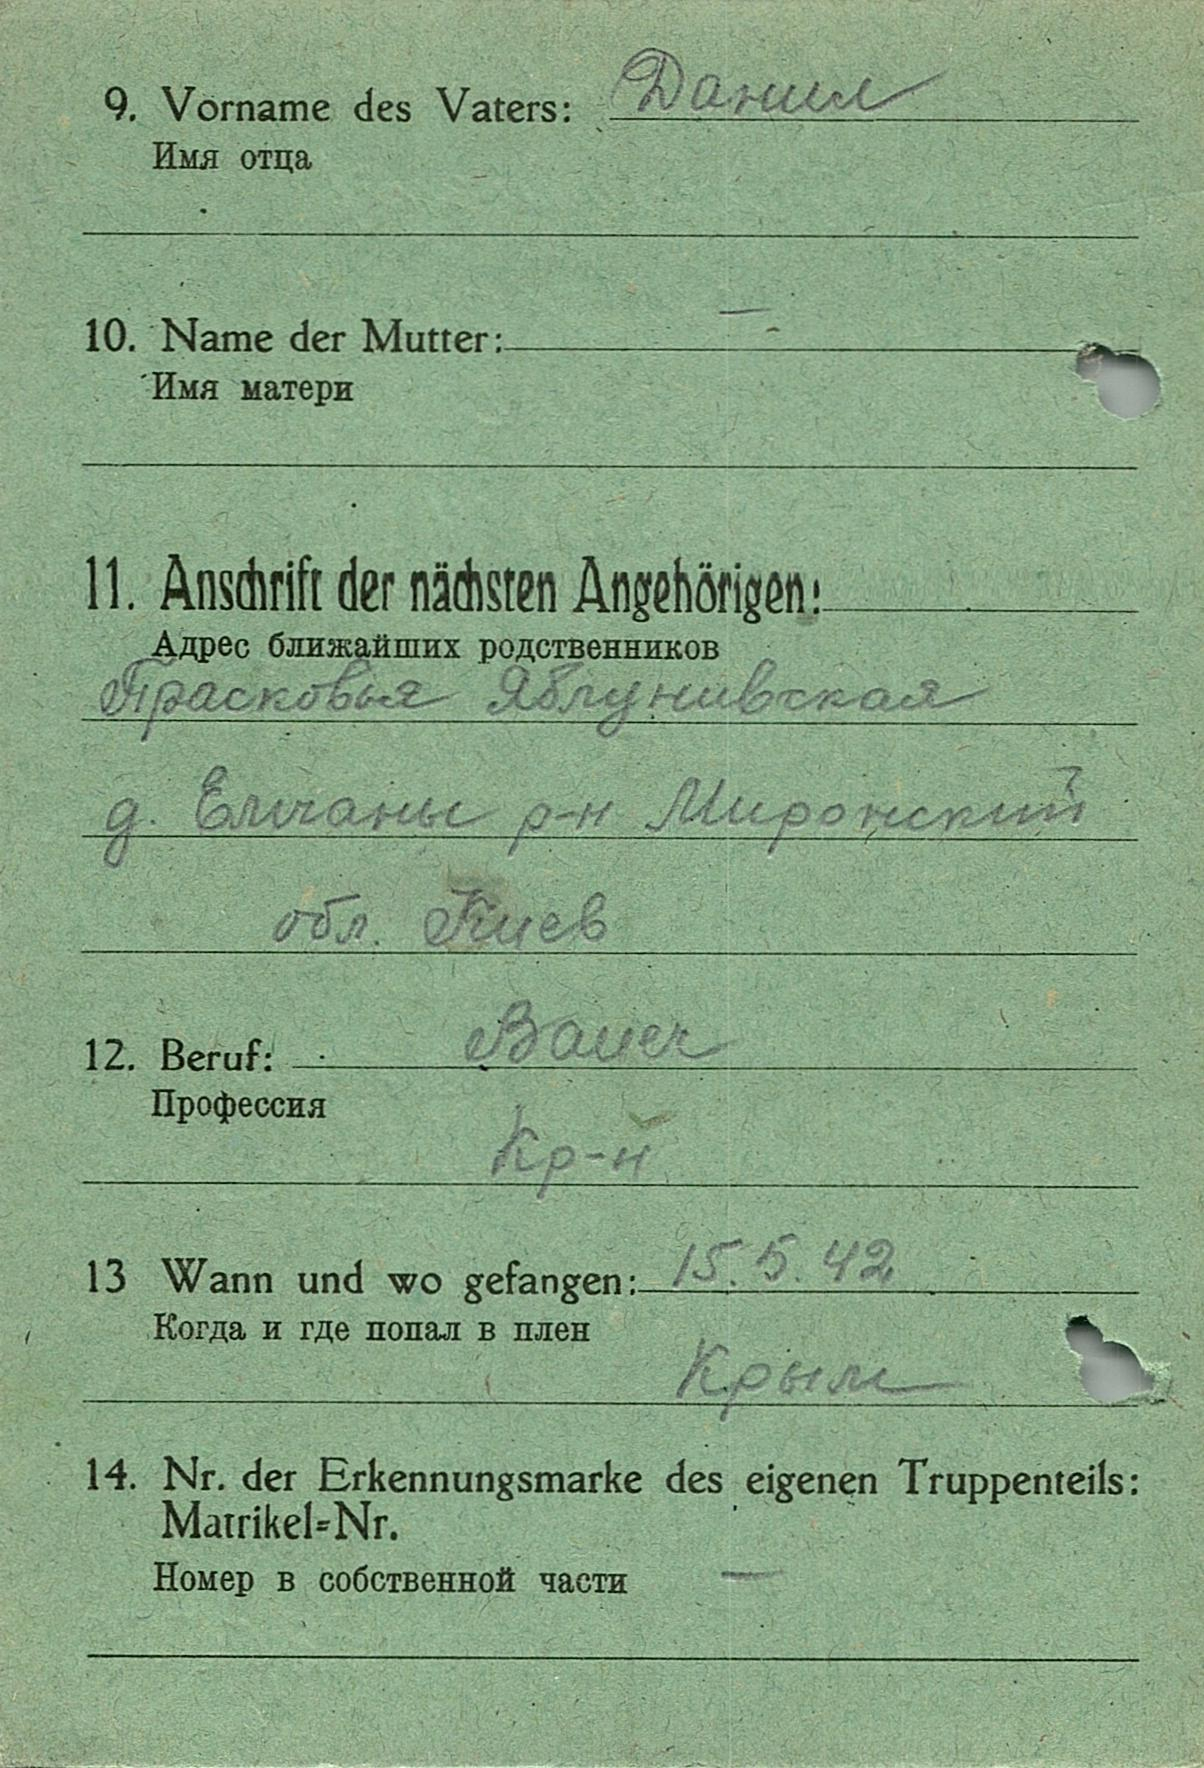 9. Vorname des Vaters: Данил
Имя отца
10. Name der Mutter: —
Имя матери
11. Anschrift der nächsten Angehörigen:
Адрес ближайших родственников
Прасковья Яблунивская
д. Елчаны р-н Миронский
обл. Киев
12. Beruf: Bauer
Профессия
Кр-н
13 Wann und wo gefangen: 15.5.42
Когда и где попал в плен
Крым
14. Nr. der Erkennungsmarke des eigenen Truppenteils:
Matrikel=Nr.
Номер в собственной части —